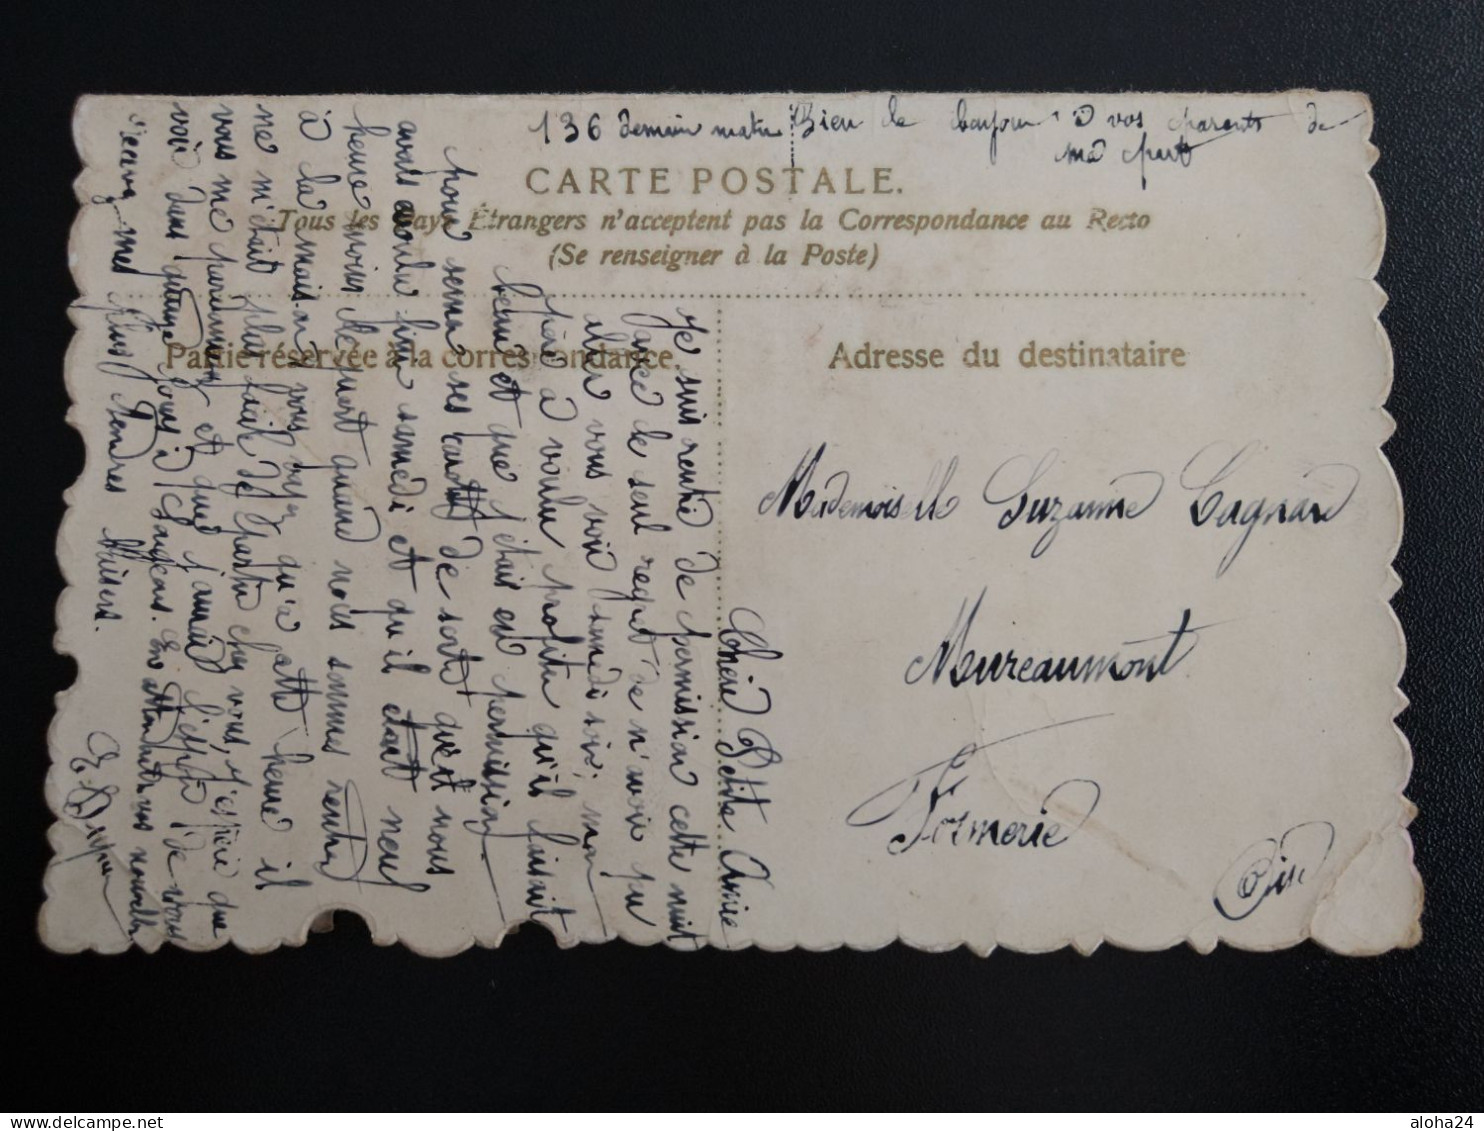 136 demain matin
Bien le bonjour à vos parents de
ma part
CARTE POSTALE.
Tous les Pays Étrangers n'acceptent pas la Correspondance au Recto
(Se renseigner à la Poste)
Partie réservée à la correspondance.
Adresse du destinataire
Chère Petite Amie
Je suis rentré de permission cette nuit
de seul regret de n'avoir pu
aller vous voir samedi soir, mon
père a voulu profiter qu'il faisait
beau et que j'étais en permission
pour semer ses carottes de sort que nous
avons voulu finir samedi et qu'il était neuf
heure moins le quart quand nous sommes rentrés
à la maison, vous voyez qu'a cette heure il
ne m'était plus facile de partir chez vous, j'espère que
vous me pardonnerez et que j'aurai l'espoir de vous
voir dans quinze jours à Songeons. En attendant vos nouvelles
recevez mes plus tendres baisers.
Mademoiselle Suzanne Cagnard
Mureaumont
Formerie
Oise
aloha24